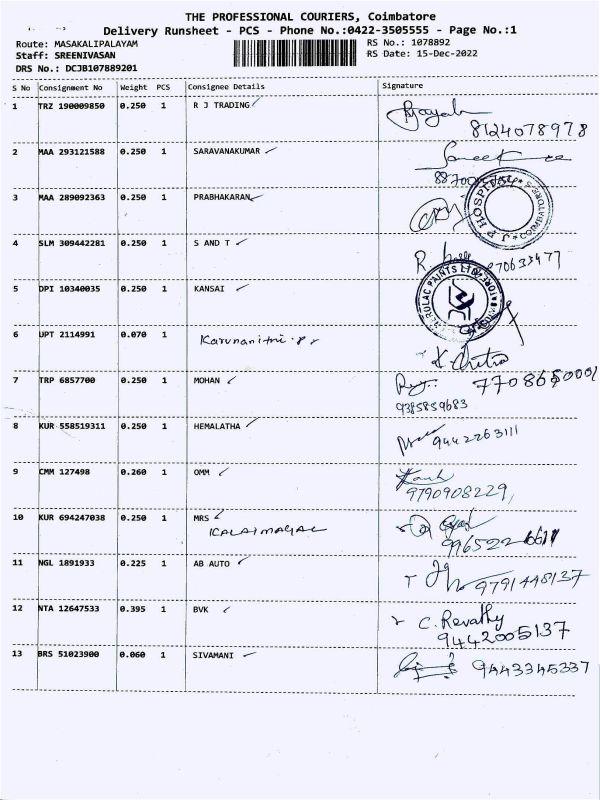 THE PROFESSIONAL COURIERS, Coimbatore
Delivery Runsheet - PCS - Phone No.:0422-3505555 - Page No.:1
Route: MASAKALIPALAYAM RS No.: 1078892
Staff: SREENIVASAN RS Date: 15-Dec-2022
DRS No.: DCJB107889201
S No Consignment No Weight PCS Consignee Details Signature
1 TRZ 190009850 0.250 1 R J TRADING
8124078978
2 MAA 293121588 0.250 1 SARAVANAKUMAR
3 MAA 289092363 0.250 1 PRABHAKARAN
HOSPITAL COIMBATORE
4 SLM 309442281 0.250 1 S AND T
5 DPI 10340035 0.250 1 KANSAI
PAINTS
6 UPT 2114991 0.070 1 Karunanithi.P
K. Chitra
7 TRP 6857700 0.250 1 MOHAN
9385859683
8 KUR 558519311 0.250 1 HEMALATHA
9442263111
9 CMM 127498 0.260 1 OMM
9790908229,
10 KUR 694247038 0.250 1 MRS
KALAIMAGAL
11 NGL 1891933 0.225 1 AB AUTO
9791448137
12 NTA 12647533 0.395 1 BVK
C. Revathy
9442005137
13 BRS 51023900 0.060 1 SIVAMANI
9443345337